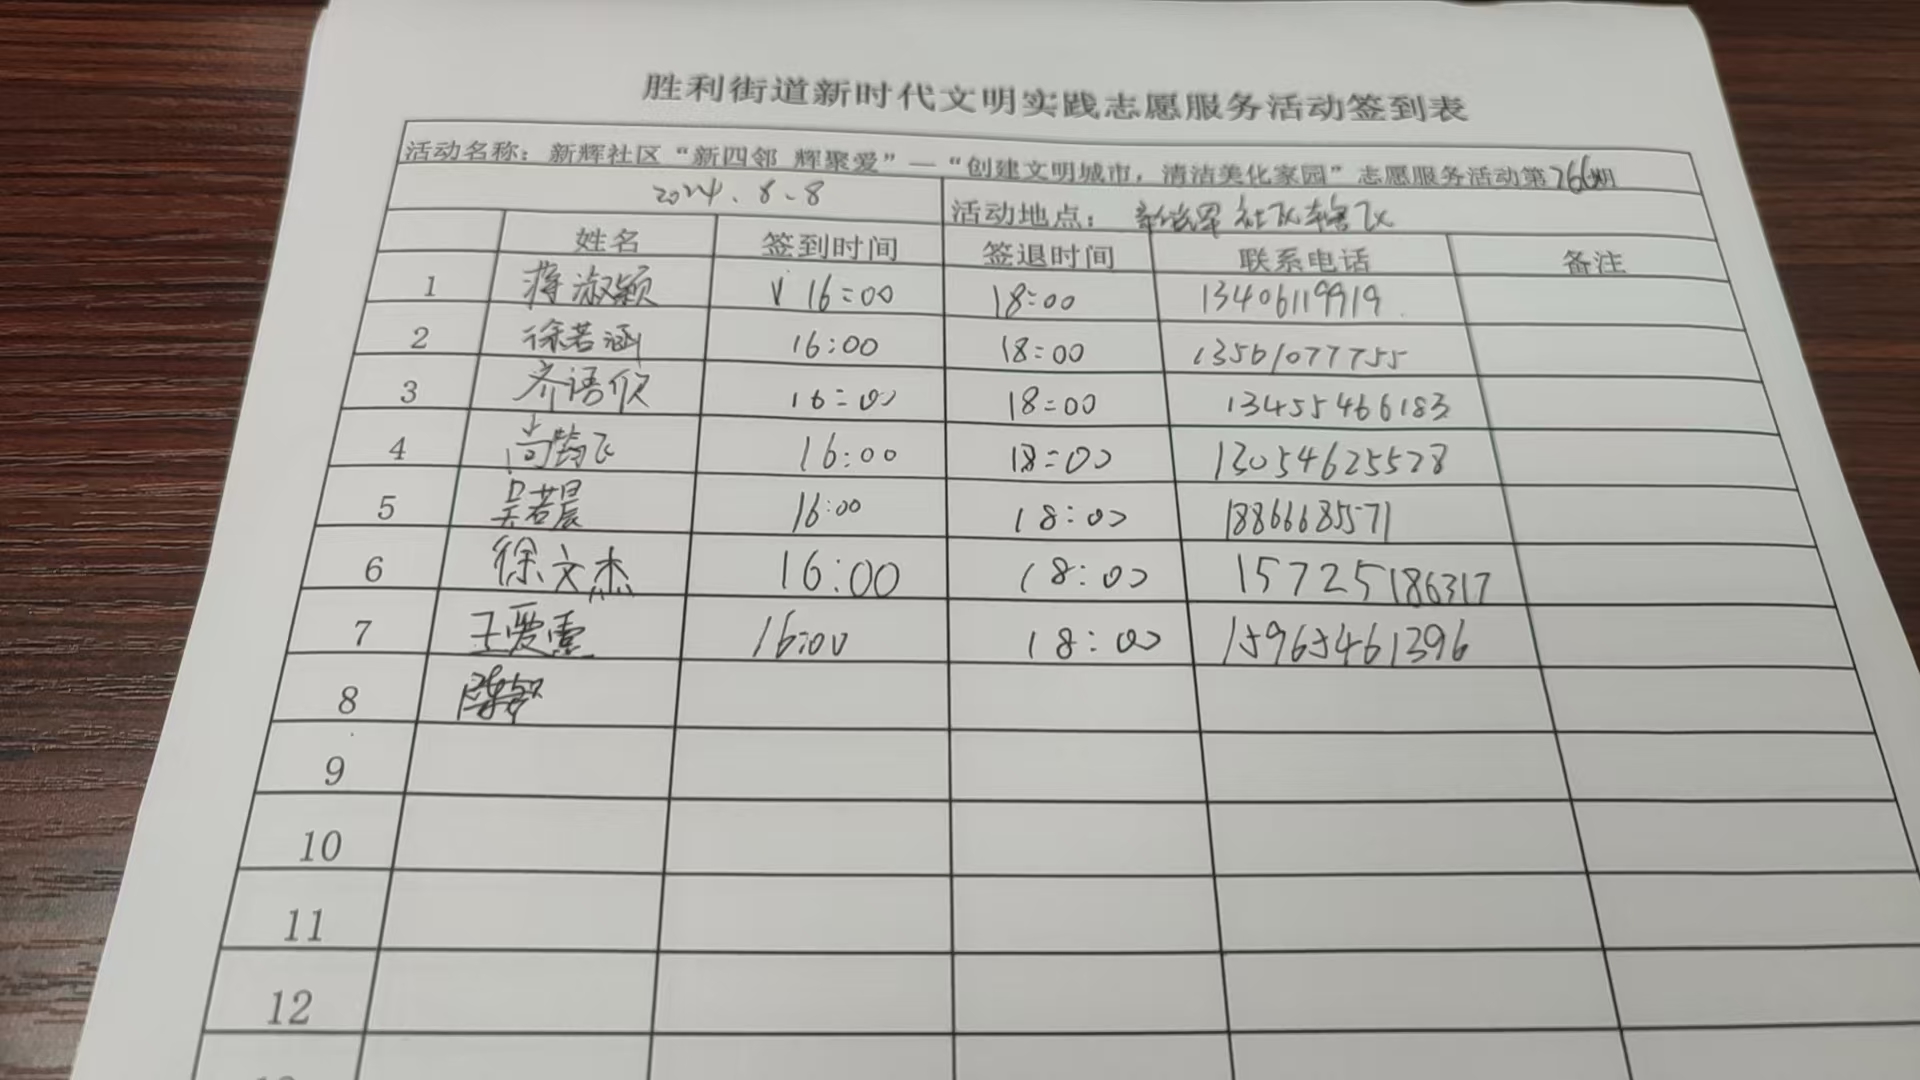 胜利街道新时代文明实践志愿服务活动签到表
活动名称：新辉社区“新四邻 辉聚爱”—“创建文明城市，清洁美化家园”志愿服务活动第266期
2024.8.8 活动地点： 社区辖区
姓名 签到时间 签退时间 联系电话 备注
1 蒋淑颖 √ 16:00 18:00 13406119919
2 徐若涵 16:00 18:00 13561077755
3 齐语欣 16:00 18:00 13455466183
4 尚 飞 16:00 18:00 13054625528
5 吴若晨 16:00 18:00 18866685571
6 徐文杰 16:00 18:00 15725186317
7 王爱 16:00 18:00 15965461396
8 陈
9
10
11
12